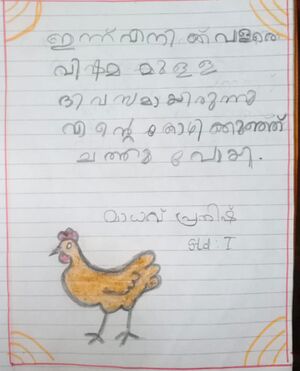 ഇന്ന് എനിക്ക് വളരെ
വിഷമ മുള്ള
ദിവസമായിരുന്നു
എന്റെ കോഴിക്കുഞ്ഞ്
ചത്തു പോയി.
മാധവ് പ്രനിഷ്
Std : I